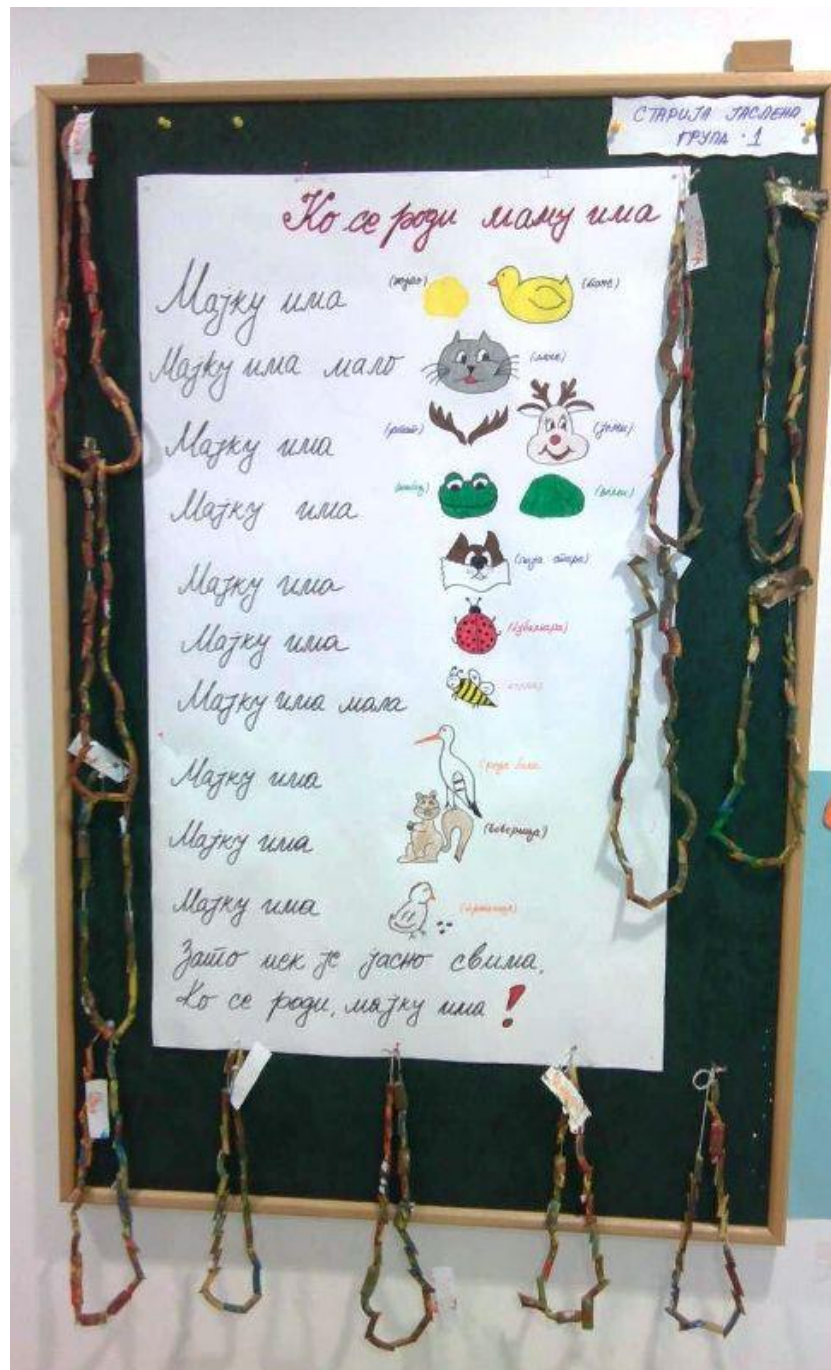 СТАРИЈА ЈАСЛЕНА
ГРУПА · 1
Ко се роди маму има
Мајку има (жуто) (паче)
Мајку има мало (маче)
Мајку има
Мајку има
Мајку има (куја стара)
Мајку има (бубамара)
Мајку има мала
Мајку има (рода бела
Мајку има (веверица)
Мајку има
Зато нек је јасно свима,
Ко се роди, мајку има!